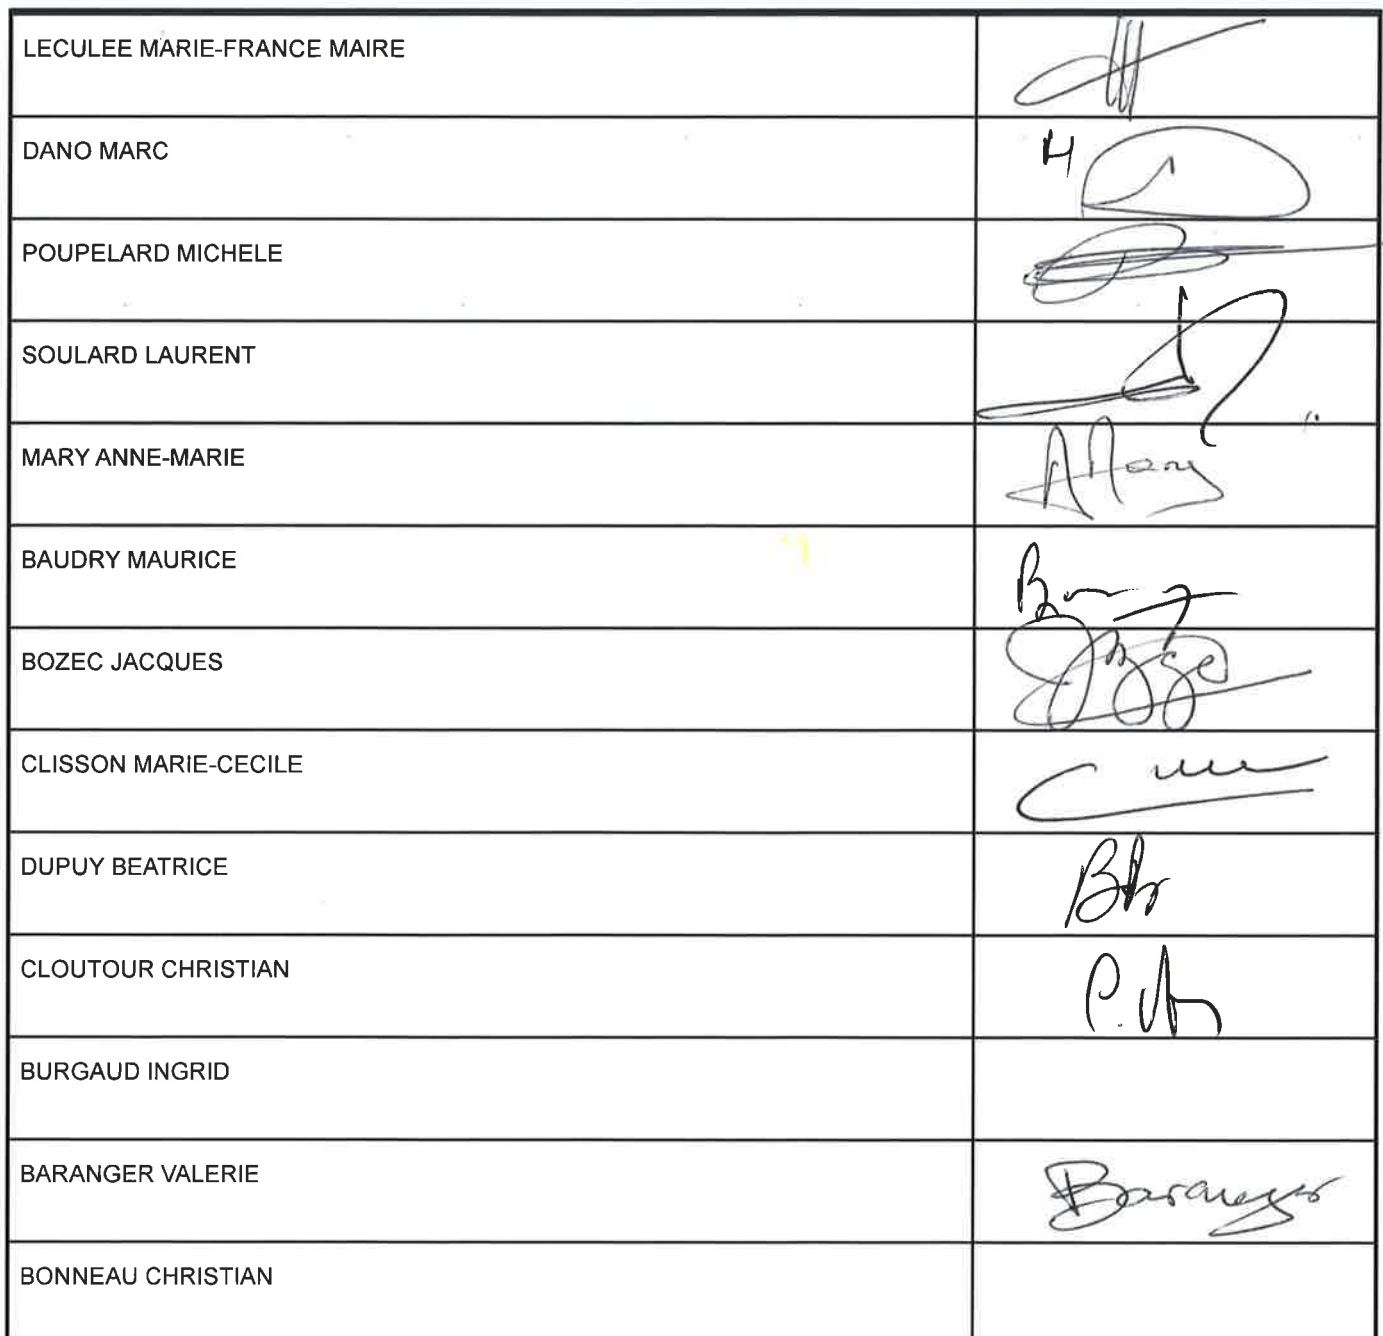 LECULEE MARIE-FRANCE MAIRE
DANO MARC
POUPELARD MICHELE
SOULARD LAURENT
MARY ANNE-MARIE
BAUDRY MAURICE
BOZEC JACQUES
CLISSON MARIE-CECILE
DUPUY BEATRICE
CLOUTOUR CHRISTIAN
BURGAUD INGRID
BARANGER VALERIE
Baranger
BONNEAU CHRISTIAN